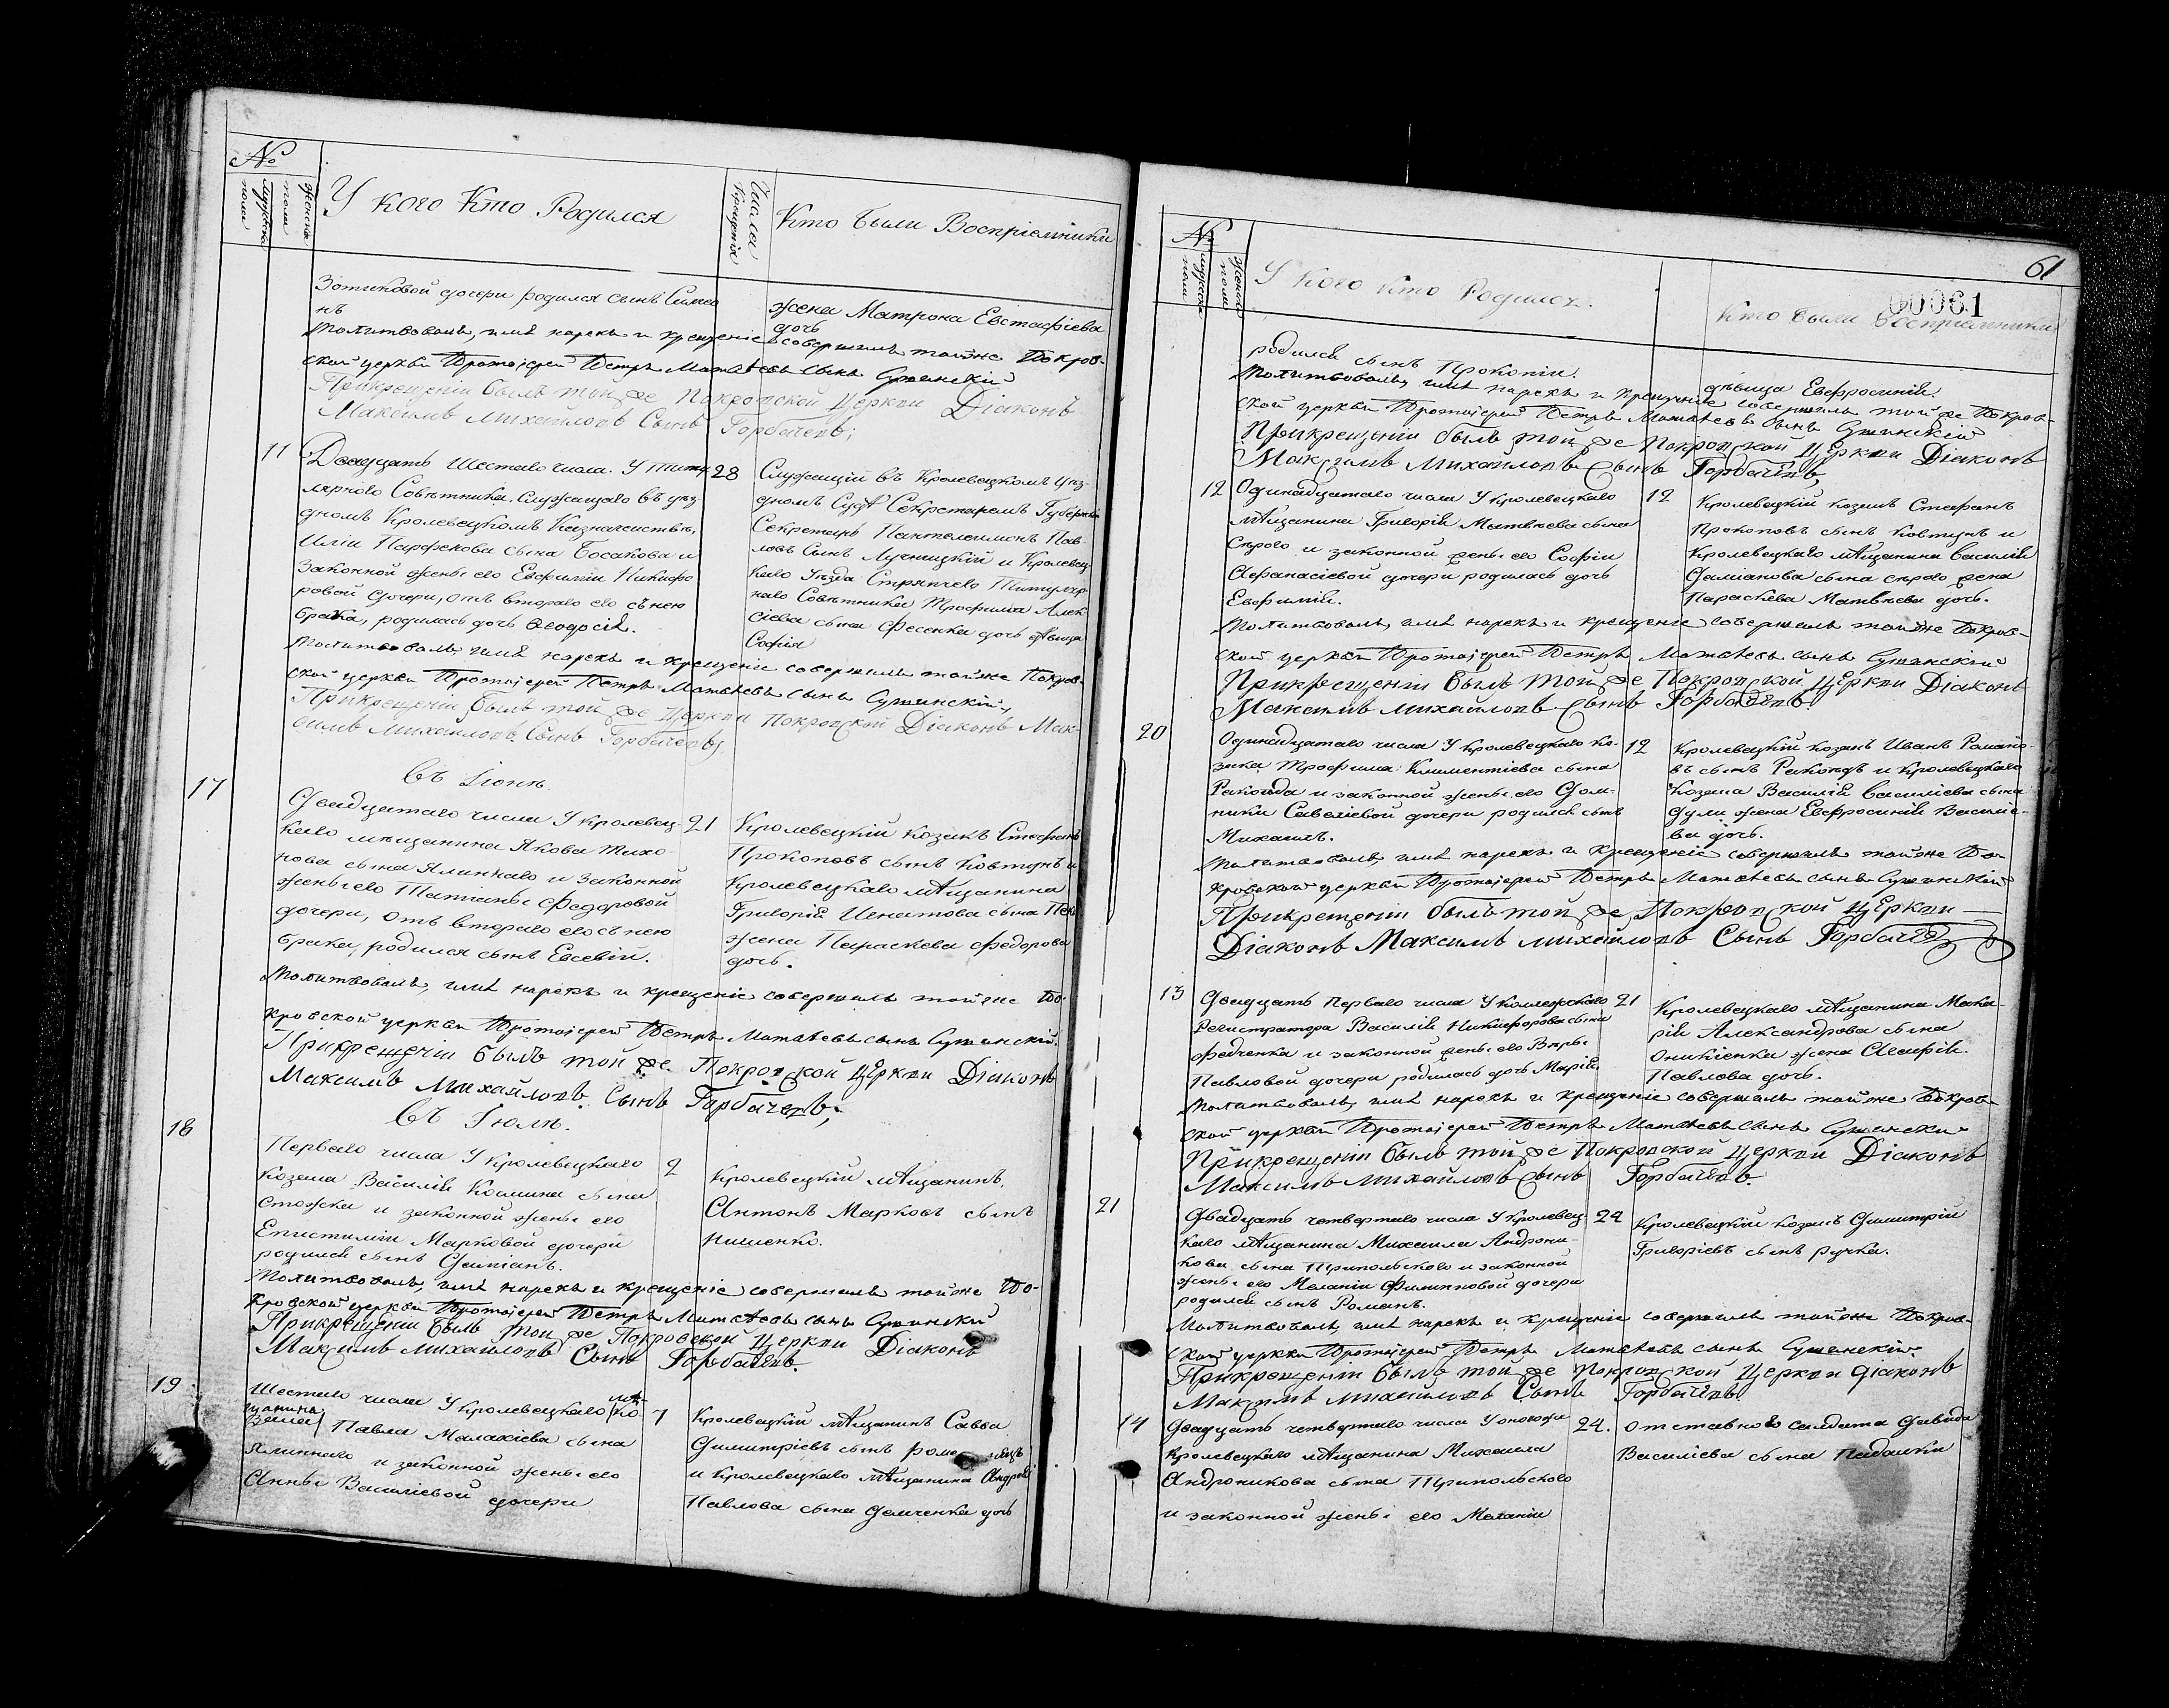 №
мужеска пола
женска пола
У кого Кто Родился
Числа Крещенія
Кто были Воспріемники
Зотиковой дочери родился сынъ Симео
нъ
жена Матрона Евстафіева
дочь
Молитвовалъ, имя нарекъ и крещеніе совершилъ тойже Покров-
ской церкви Протоіерей Петръ Матвѣевъ сынъ
Прикрещеніи былъ той же Покровской Церкви Діаконъ
Максимъ Михайловъ Сынъ Горбачевъ;
11
Двадцать Шестаго числа У титу-
лярнаго Совѣтника, служащаго въ уѣз-
дномъ Кролевецкомъ Казначействѣ,
Иліи сына Босакова и
Законной жены его Евфиміи Никифо
ровой дочери, отъ втораго его съ нею
брака, родилась дочь Ѳеодосія.
28
Служащій въ Кролевецкомъ уѣз-
дномъ Судѣ Секретаремъ Губернскій
Секретарь Пантелеимонъ Пав
ловъ Сынъ и Кролевец
каго Уѣзда Стряпчего Титуляр
наго Совѣтника Трофима Алек
сѣева сына Фесенка дочь дѣвица
Софія
Молитвовалъ имя нарекъ и крещеніе совершилъ тойже Покров-
ской церкви Протоіерей Петръ Матвѣевъ сынъ
Прикрещеніи былъ той же Церкви Покровской Діаконъ Мак-
симъ Михайловъ Сынъ Горбачевъ;
Въ Іюнѣ.
17
Двадцатаго числа У кролевец-
каго мѣщанина Якова Тихо-
нова сына Ялинаго и законной
жены его Татіаны Федоровой
дочери, отъ втораго его съ нею
брака, родился сынъ Евсевій.
21
Кролевецкій козакъ Стефанъ
Прокоповъ сынъ Ковтунъ и
Кролевецкаго мѣщанина
Григорія Игнатова сына
жена Параскева Федорова
дочь.
Молитвовалъ, имя нарекъ и крещеніе совершилъ тойже По-
кровской церкви Протоіерей Петръ Матвѣевъ сынъ
Прикрещеніи былъ той же Покровской Церкви Діаконъ
Максимъ Михайловъ Сынъ Горбачевъ;
Въ Іюлѣ.
18
Перваго числа У Кролевецкаго
козака Василія Космина сына
Стожка и законной жены его
Епистиміи Марковой дочери
родился сынъ Даміанъ.
2
Кролевецкій мѣщанинъ
Антонъ Марковъ сынъ
Молитвовалъ, имя нарекъ и крещеніе совершилъ тойже По-
кровской церкви Протоіерей Петръ Матвѣевъ сынъ
Прикрещеніи былъ той же Покровской Церкви Діаконъ
Максимъ Михайловъ Сынъ Горбачевъ.
19
Шестаго числа У кролевецкаго (ко мѣ
зака) щанина Павла Малахіева сына
Ялинаго и законной жены его
Анны Василіевой дочери
7
Кролевецкій мѣщанинъ Савва
Димитріевъ сынъ
и кролевецкаго мѣщанина Андрея
Павлова сына Демченка дочь
61
00061
№
мужеска пола
женска пола
У кого кто Родился.
Кто были воспріемники
родился сынъ Прокопій.
дѣвица Евфросинія.
Молитвовалъ, имя нарекъ и крещеніе совершилъ той же Покров-
ской церкви Протоіерей Петръ Матвѣевъ сынъ
Прикрещеніи былъ той же Покровской Церкви Діаконъ
Максимъ Михайловъ Сынъ Горбачевъ;
12
Одинадцатаго числа У кролевецкаго
мѣщанина Григорія Матвѣева сына
Сѣраго и законной жены его Софіи
Афанасіевой дочери родилась дочь
Евфимія.
12
Кролевецкій козакъ Стефанъ
Прокоповъ сынъ Ковтунъ и
Кролевецкаго мѣщанина Василія
Даміанова сына сѣраго жена
Параскева Матвѣева дочь.
Молитвовалъ, имя нарекъ и крещеніе совершилъ тойже Покров-
ской церкви Протоіерей Петръ Матвѣевъ сынъ
Прикрещеніи былъ той же Покровской Церкви Діаконъ
Максимъ Михайловъ Сынъ Горбачевъ.
20
Одинадцатаго числа У кролевецкаго ко-
зака Трофима Климентіева сына
Ракоида и законной жены его Дом-
ники Савеліевой дочери родился сынъ
Михаилъ.
12
Кролевецкій козакъ Иванъ Романо-
въ сынъ и Кролевецкаго
козака Василія Василіева сына
Дули жена Евфросинія Василіе-
ва дочь.
Молитвовалъ, имя нарекъ и крещеніе совершилъ тойже По-
кровской церкви Протоіерей Петръ Матвѣевъ сынъ
Прикрещеніи былъ той же Покровской Церкви
Діаконъ Максимъ Михайловъ Сынъ Горбачевъ
13
Двадцать перваго числа У Коллежскаго
Регистратора Василія Никифорова сына
Федченка и законной жены его Вѣры
Павловой дочери родилась дочь Марія.
21
Кролевецкаго мѣщанина Мака-
рія Александрова сына
Оникіенка жена Агафія
Павлова дочь.
Молитвовалъ, имя нарекъ и крещеніе совершилъ тойже Покров-
ской церкви Протоіерей Петръ Матвѣевъ сынъ
Прикрещеніи былъ той же Покровской Церкви Діаконъ
Максимъ Михайловъ Сынъ Горбачевъ.
21
Двадцать четвертаго числа У кролевец-
каго мѣщанина Михаила Андрони-
кова сына Трипольского и законной
жены его Меланіи Филипповой дочери
родился сынъ Романъ.
24
Кролевецкій козакъ Димитрій
Григоріевъ сынъ ручка.
Молитвовалъ, имя нарекъ и крещеніе совершилъ тойже Покров-
ской церкви Протоіерей Петръ Матвѣевъ сынъ
Прикрещеніи былъ той же Покровской Церкви Діаконъ
Максимъ Михайловъ Сынъ Горбачевъ
14
Двадцать четвертаго числа У оногожъ
кролевецкаго мѣщанина Михаила
Андроникова сына Трипольского
и законной жены его Меланіи
24.
отставнаго салдата Давида
Василіева сына